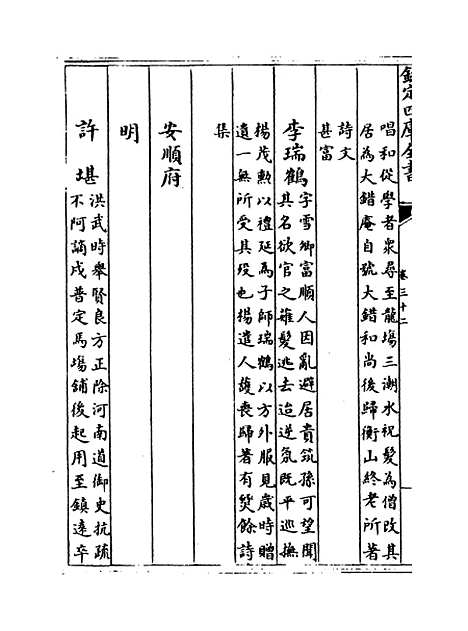 欽定四庫全書
卷三十二
唱和從學者衆尋至龍塲三潮水祝髮為僧改其
居為大錯庵自號大錯和尚後歸衡山終老所著
詩文
甚富
李瑞鶴
字雪鄉富順人因亂避居貴筑孫可望聞
其名欲官之薙髮逃去迨逆氛既平巡撫
楊茂勲以禮延為子師瑞鶴以方外服見歲時贈
遺一無所受其歿也楊遣人䕶喪歸著有焚餘詩
集
安順府
明
許堪
洪武時舉賢良方正除河南道御史抗疏
不阿謫戍普定馬塲鋪後起用至鎮遠卒